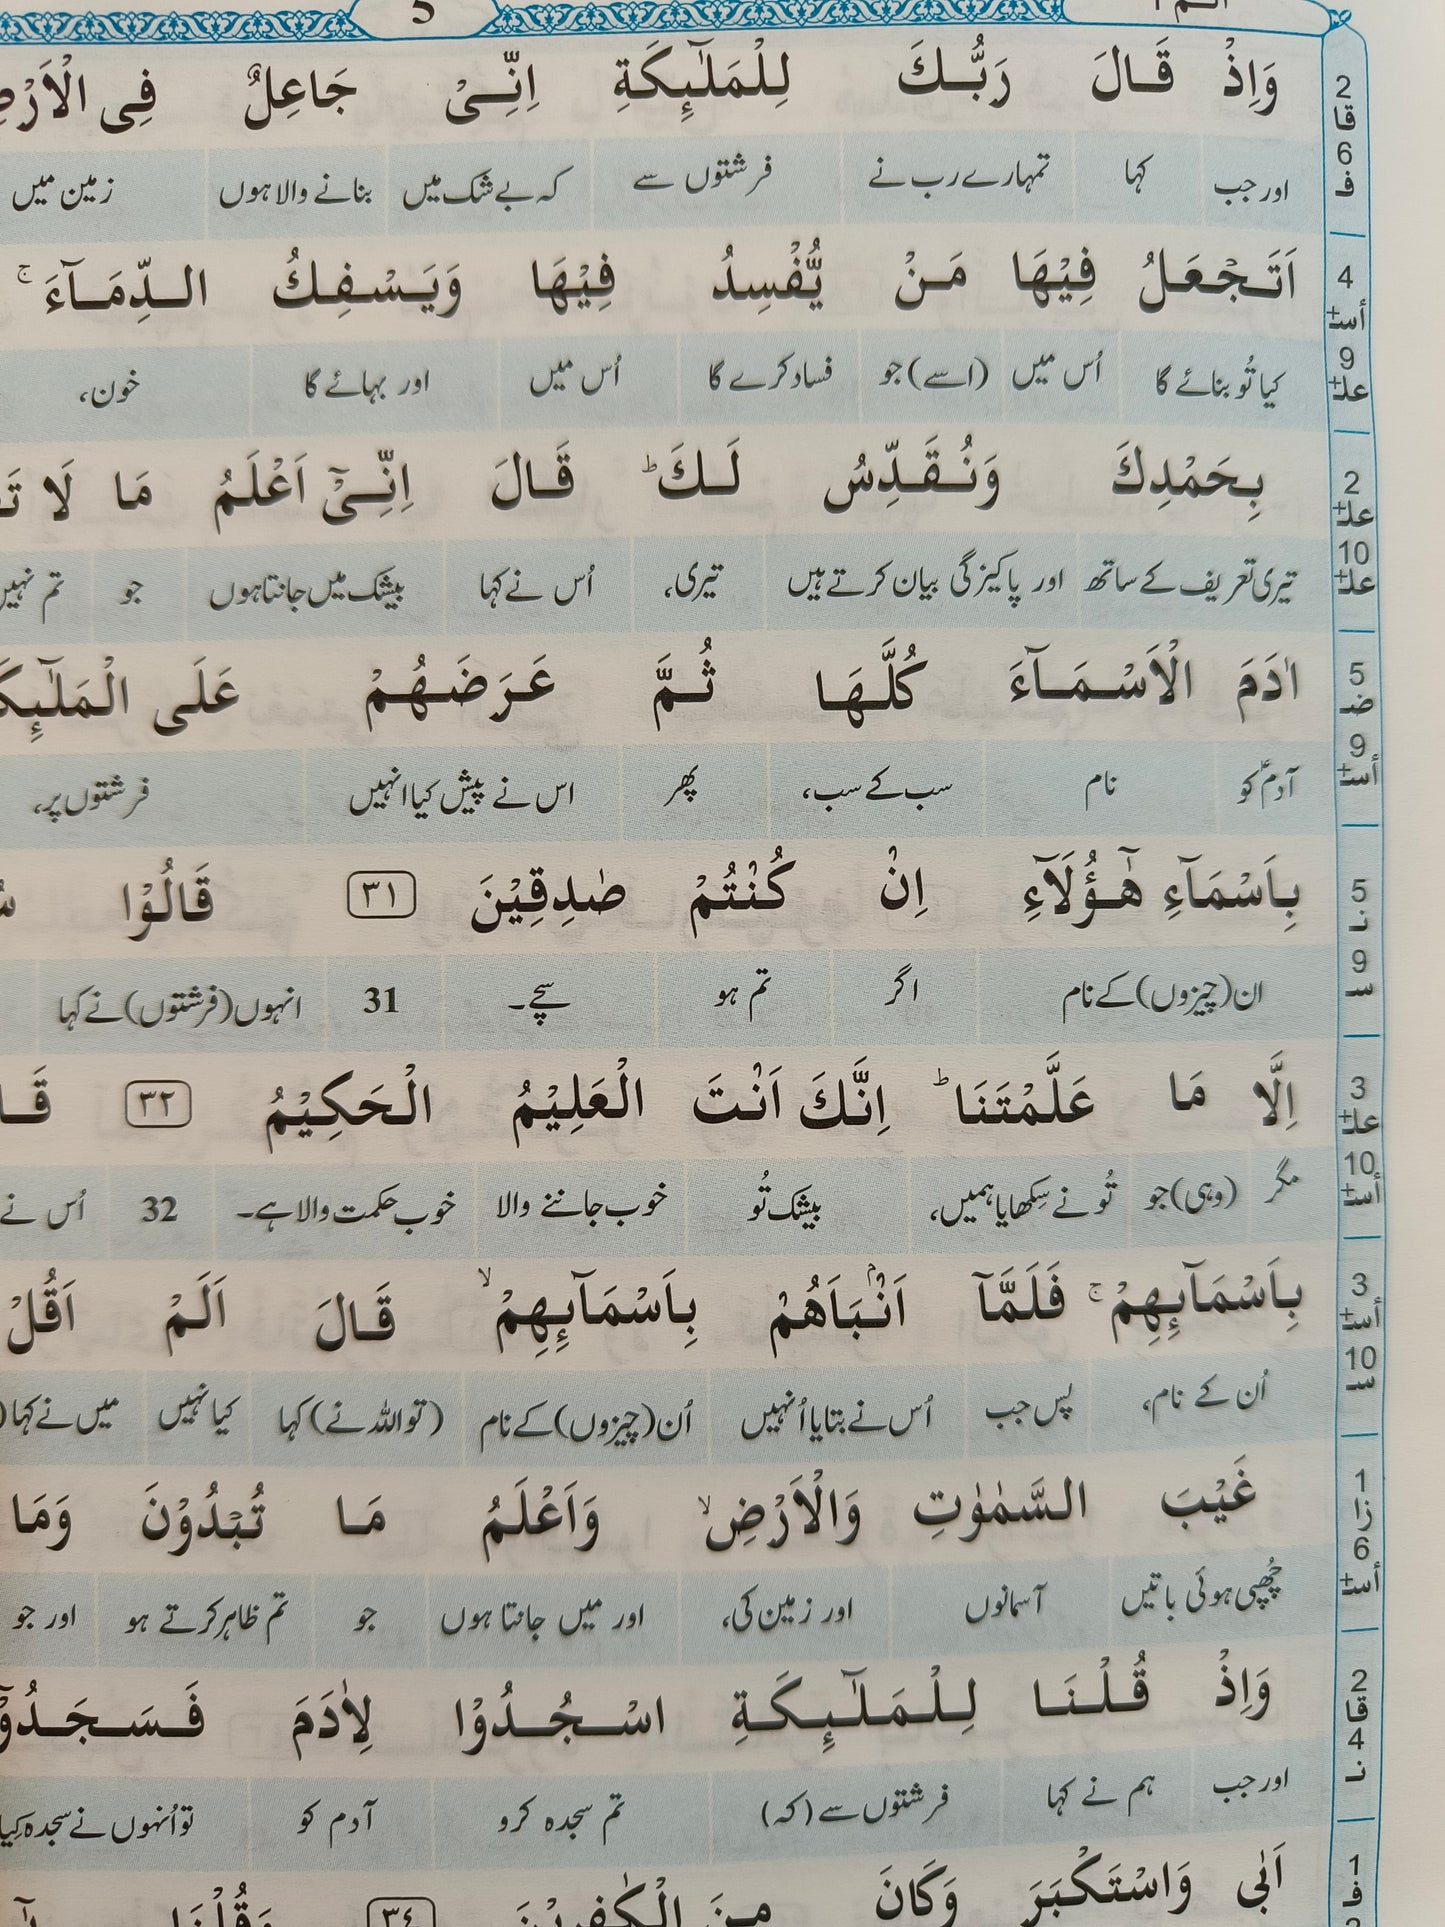 5
وَاِذْ قَالَ رَبُّكَ لِلْمَلٰٓئِكَةِ اِنِّيْ جَاعِلٌ فِي
اور جب کہا تمہارے رب نے فرشتوں سے کہ بے شک میں بنانے والا ہوں زمین میں
2 قا 6 ف
اَتَجْعَلُ فِيْهَا مَنْ يُّفْسِدُ فِيْهَا وَيَسْفِكُ الدِّمَآءَ ۚ
کیا تُو بنائے گا اُس میں (اسے) جو فساد کرے گا اُس میں اور بہائے گا خون،
4 أسـ+ 9 علـ+
بِحَمْدِكَ وَنُقَدِّسُ لَكَ ؕ قَالَ اِنِّيْٓ اَعْلَمُ مَا لَا
تیری تعریف کے ساتھ اور پاکیزگی بیان کرتے ہیں تیری، اُس نے کہا بیشک میں جانتا ہوں جو تم
2 علـ+ 10 علـ+
اٰدَمَ الْاَسْمَآءَ كُلَّهَا ثُمَّ عَرَضَهُمْ عَلَى
آدمؑ کو نام سب کے سب، پھر اس نے پیش کیا انہیں فرشتوں پر،
5 ضـ 9 أسـ+
بِاَسْمَآءِ هٰٓؤُلَآءِ اِنْ كُنْتُمْ صٰدِقِيْنَ ٣١ قَالُوْا
ان (چیزوں) کے نام اگر تم ہو سچے۔ 31 انہوں (فرشتوں) نے کہا
5 نـ 9 سـ
اِلَّا مَا عَلَّمْتَنَا ؕ اِنَّكَ اَنْتَ الْعَلِيْمُ الْحَكِيْمُ ٣٢
مگر (وہی) جو تُو نے سِکھایا ہمیں، بیشک تُو خوب جاننے والا خوب حکمت والا ہے۔ 32 اُس نے
3 علـ+ 10 أسـ+
بِاَسْمَآئِهِمْ ۚ فَلَمَّآ اَنْۢبَاَهُمْ بِاَسْمَآئِهِمْ ۙ قَالَ اَلَمْ اَقُلْ
اُن کے نام، پس جب اُس نے بتایا اُنہیں اُن (چیزوں) کے نام (تو اللہ نے) کہا کیا نہیں میں نے کہا
3 أسـ+ 10 سـ
غَيْبَ السَّمٰوٰتِ وَالْاَرْضِ ۙ وَاَعْلَمُ مَا تُبْدُوْنَ وَمَا
چُھپی ہوئی باتیں آسمانوں اور زمین کی، اور میں جانتا ہوں جو تم ظاہر کرتے ہو اور جو
1 زا 6 أسـ+
وَاِذْ قُلْنَا لِلْمَلٰٓئِكَةِ اسْجُدُوْا لِاٰدَمَ
اور جب ہم نے کہا فرشتوں سے (کہ) تم سجدہ کرو آدم کو تو اُنہوں نے سجدہ کِیا
2 قا 4 نـ
اَبٰى وَاسْتَكْبَرَ وَكَانَ مِنَ الْكٰفِرِيْنَ ٣٤ وَقُلْنَا
1 ف